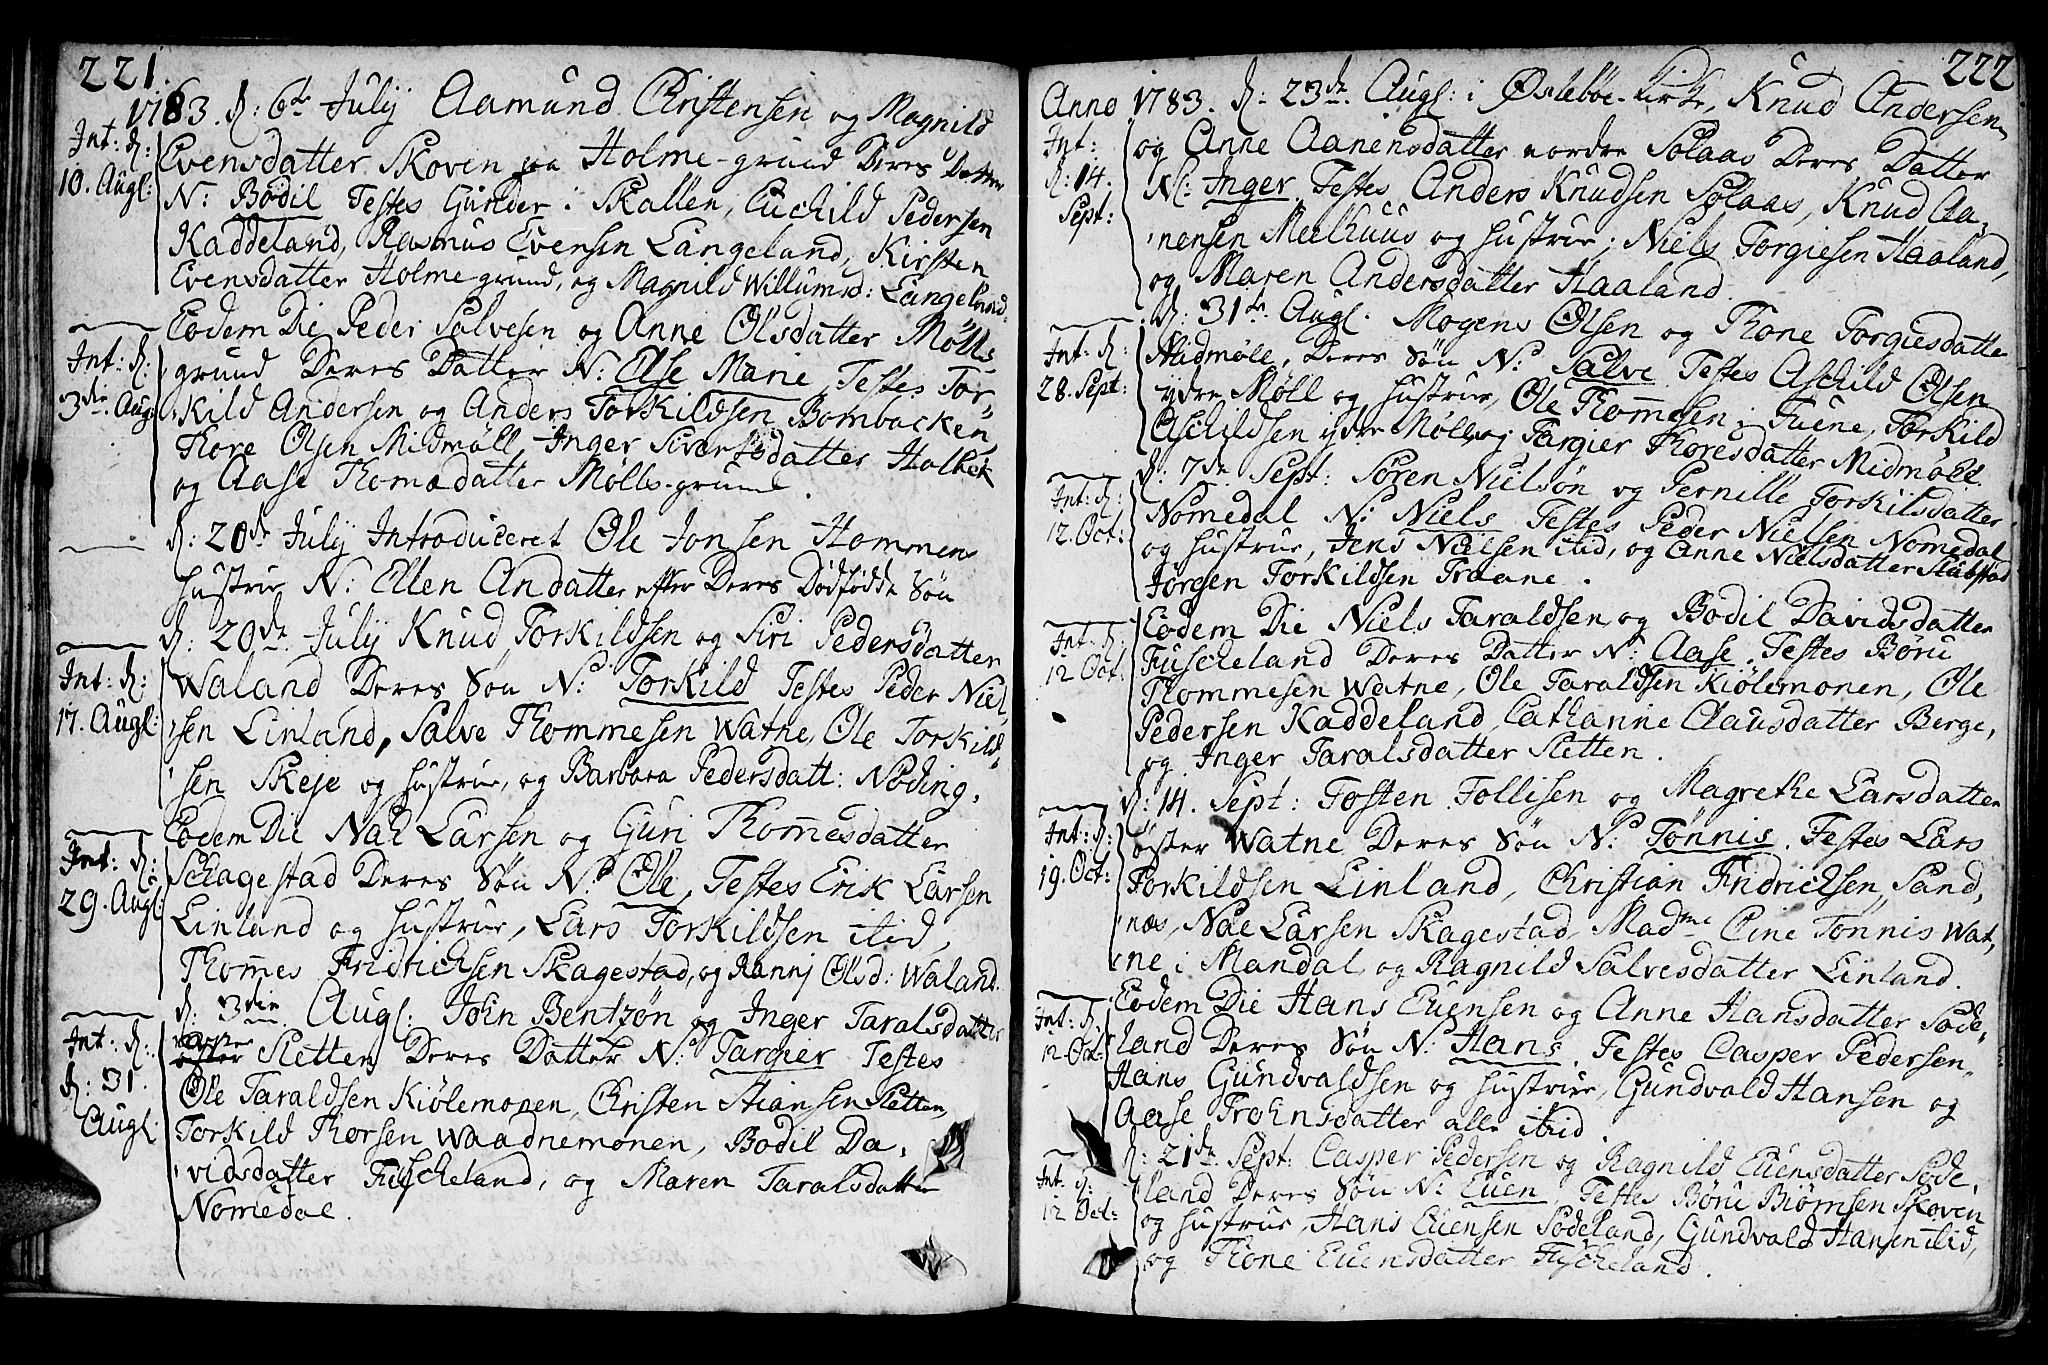 221.
1783. d: 6te July Aamund Christensen og Magnild
Int: d:
10. Augl:
Evensdatter Skoven paa Holme-grund Deres Datter
N: Bodil Testes Gunder i Skallen, Euchild Pedersen
Kaddeland, Rasmus Evensen Langeland, Kirsten
Evensdatter Holme grund, og Magnild Willumsd: Langeland.
Eodem Die Peder Salvesen og Anne Olsdatter Mölls
Int: d:
3die Aug:
grund Deres Datter N: Else Marie Testes Tor-
kild Andersen og Anders Torkildsen Bombacken,
Thore Olsen Midmöll, Inger Siversdatter Holbek
og Aase Thomædatter Mölls-grund.
d: 20de July Introduceret Ole Jonsen Hommens
hustrue N: Ellen Andatter efter Deres Dödfödde Sön
d: 20de July Knud Torkildsen og Siri Pedersdatter
Int: d:
17. Augl:
Waland Deres Sön N: Torkild Testes Peder Niel,
sen Linland, Salve Thommesen Watne, Ole Torkild,
sen Skeje og hustrue, og Barbara Pedersdatt: Nöding.
Eodem Die Nal Larsen og Guri Thommesdatter
Int: d:
29. Augl:
Schagestad Deres Sön N: Ole, Testes Erik Larsen
Linland og hustrue, Lars Torkildsen ibid,
Thommes Fridrichsen Skagestad, og Rannj Olsd: Waland.
d: 3die Augl: John Bentzön og Inger Taralsdatter
Int: d:
d: 31.
Augl:
öster Sletten Deres Datter N: Targier Testes
Ole Taraldsen Kiölemonen, Christen Stiansen Sletten,
Torkild Thorsen Waadnemonen, Bodil Da,
vidsdatter Fuscheland, og Maren Taralsdatter
Nomedal.
222
Anno 1783. d: 23de Augl: i Ösleböe-Kirke, Knud Andersen
Int:
d: 14.
Sept:
og Anne Aanensdatter nordre Solaas Deres Datter
N: Inger Testes Anders Knudsen Solaas, Knud Aa,
nensen Meelhuus og hustrue, Niels Torgiesen Haaland,
og Maren Andersdatter Haaland.
d: 31te Augl. Mogens Olsen og Thone Torgiesdatter
Int: d:
28. Sept:
Midmöll, Deres Sön N: Salve Testes Aschild Olsen
ydre Möll og hustrue, Ole Thommesen i Tuene, Torkild
Aschildsen ydre Möll og Targier Thoresdatter Midmöll.
d: 7de Sept: Sören Nielsön og Pernille Torkilsdatter
Int: d:
12. Oct:
Nomedal N: Niels Testes Peder Nielsen Nomedal
og hustrue, Jens Nielsen ibid, og Anne Nielsdatter Stubstad
Jörgen Torkildsen Traane.
Eodem Die Niels Taraldsen, og Bodil Davidsdatter
Int: d:
12 Oct:
Fuscheland Deres Datter N: Aase. Testes Böru
Thommesen Watne, Ole Taraldsen Kiölemonen, Ole
Pedersen Kaddeland, Cathanne Clausdatter Berge,
og Inger Taralsdatter Sletten.
d: 14. Sept: Tosten Tollisen og Magrethe Larsdatter
Int: d:
19. Oct:
öster Watne Deres Sön N: Tönnis. Testes Lars
Torkildsen Linland, Christian Fridrichsen, Sand,
næs, Nae Larsen Skagestad, Madme Cine Tönnis Wat,
ne i Mandal, og Ragnild Salvesdatter Linland.
Eodem Die Hans Euensen og Anne Hansdatter Söde-
Int: d:
12 Oct:
land Deres Sön N: Hans. Testes Casper Pedersen,
Hans Gundvaldsen og hustrue, Gundvald Hansen og
Aase Trohnsdatter alle ibid.
d: 21de Sept: Casper Pedersen og Ragnild Euensdatter Söde,
Int. d:
12 Oct:
land Deres Sön N: Euen, Testes Böru Biörnsen Skoven
og hustrue, Hans Euensen Södeland, Gundvald Hansen ibid,
og Thone Euensdatter Fuscheland.